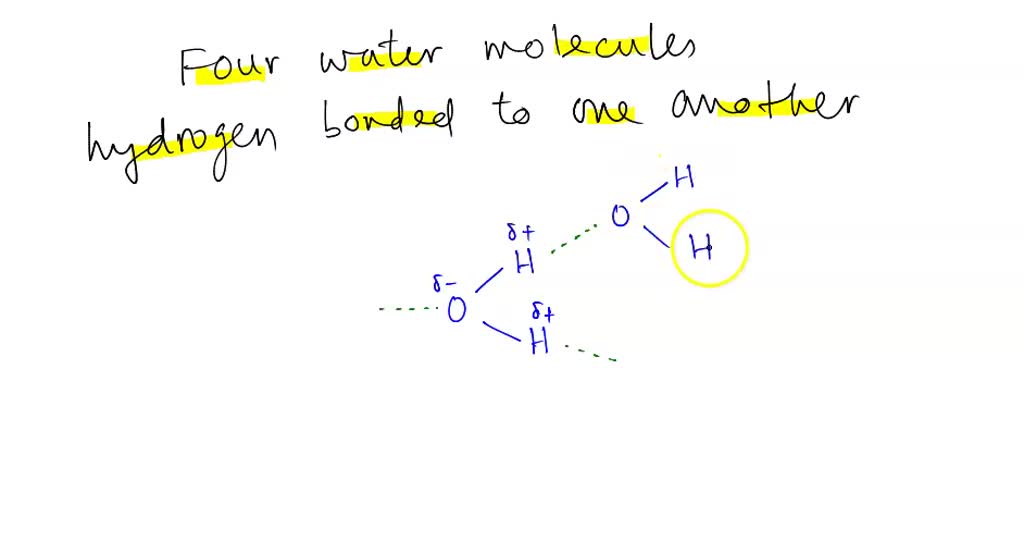 Four water molecules
hydrogen bonded to one another
H
O
δ+
H
H
δ-
O
δ+
H